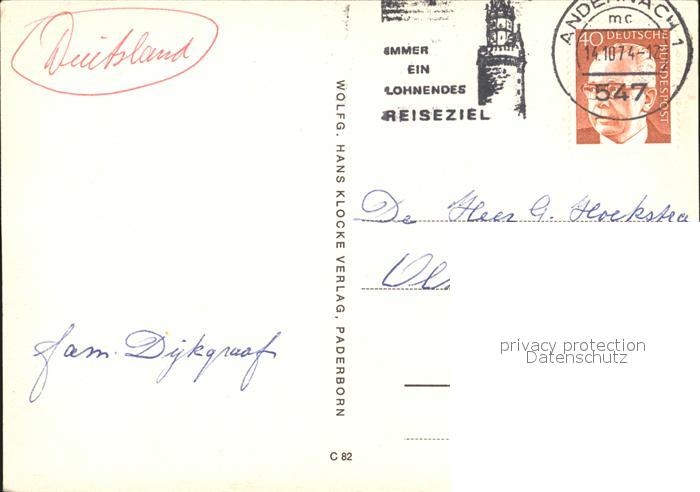 Duitsland
ANDERNACH 1
mc
14.10.74-12
547
40 DEUTSCHE BUNDESPOST
IMMER
EIN
LOHNENDES
REISEZIEL
WOLFG. HANS KLOCKE VERLAG, PADERBORN
De Heer G. Hoekstra
fam. Dijkgraaf
privacy protection
Datenschutz
C 82